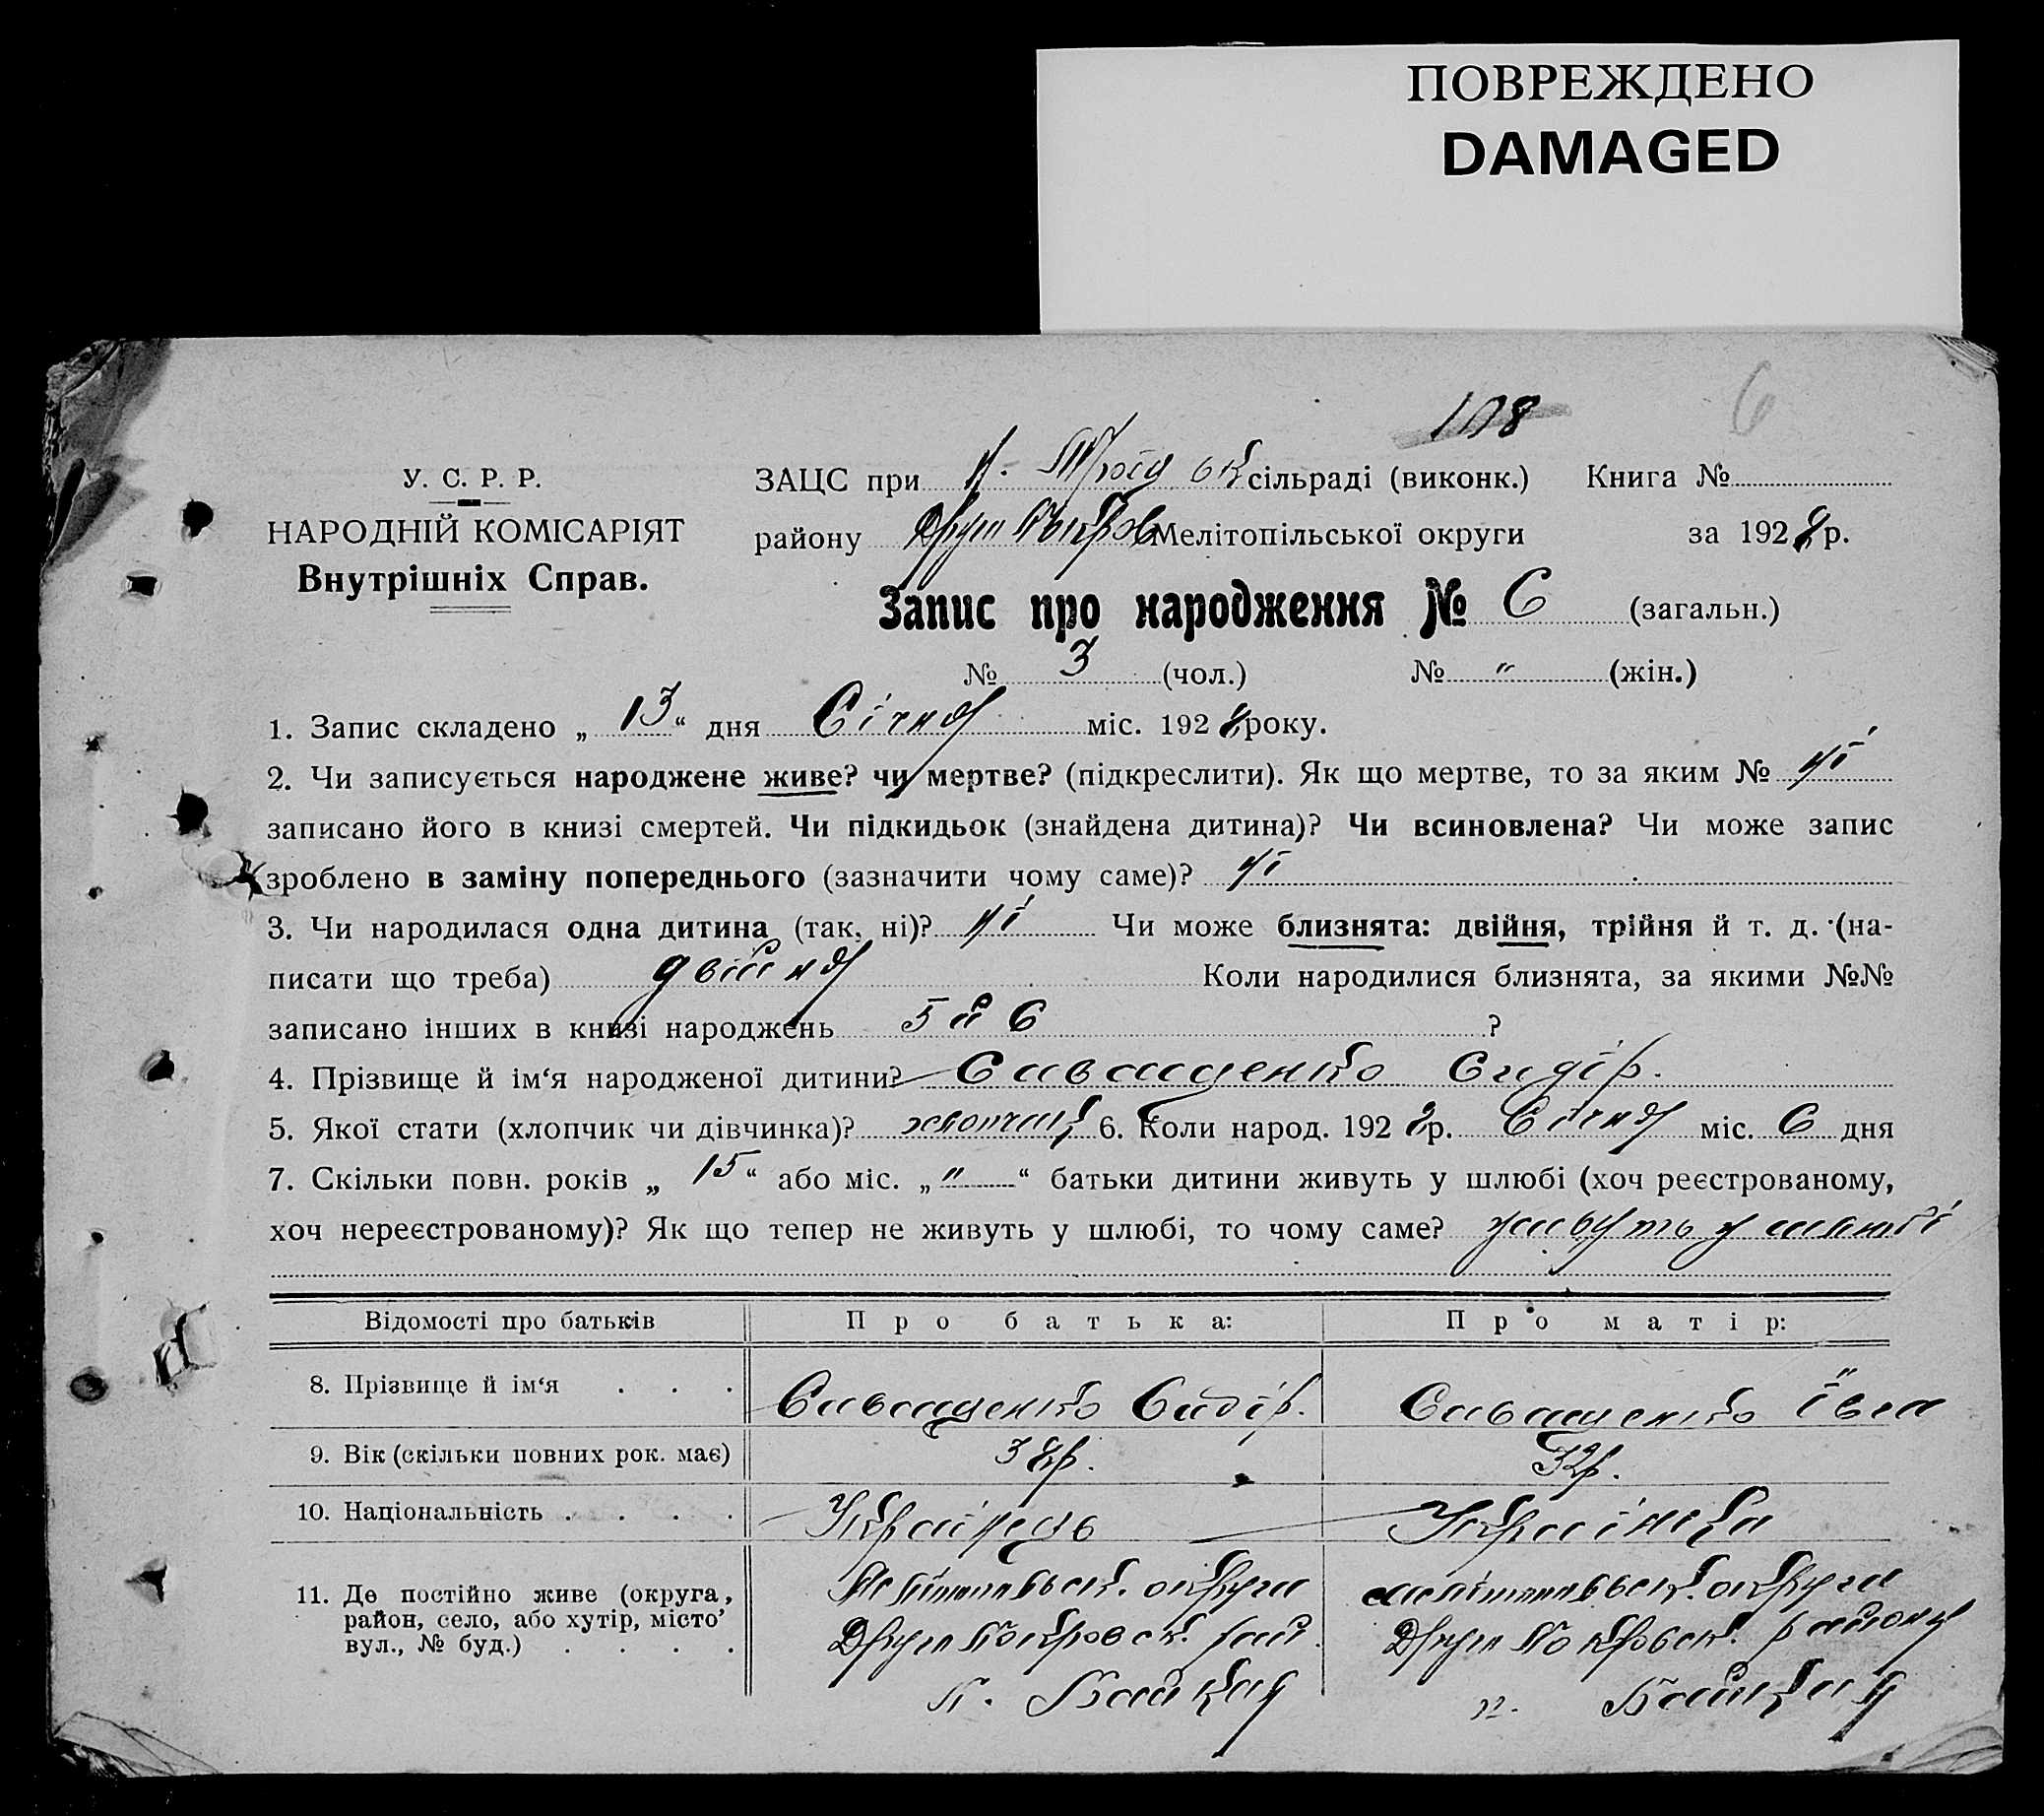 ПОВРЕЖДЕНО
DAMAGED
108
6
У. С. Р. Р.
НАРОДНІЙ КОМІСАРІЯТ
Внутрішніх Справ.
ЗАЦС при Н. сільраді (виконк.) Книга №
району Друго Покров Мелітопільської округи за 1928 р.
Запис про народження № 6 (загальн.)
№ 3 (чол.) № " (жін.)
1. Запис складено „ 13 “ дня Січня міс. 1928 року.
2. Чи записується народжене живе? чи мертве? (підкреслити). Як що мертве, то за яким № ні
записано його в книзі смертей. Чи підкидьок (знайдена дитина)? Чи всиновлена? Чи може запис
зроблено в заміну попереднього (зазначити чому саме)? ні
3. Чи народилася одна дитина (так, ні)? ні Чи може близнята: двійня, трійня й т. д. (на-
писати що треба) двійня Коли народилися близнята, за якими №№
записано інших в книзі народжень 5 й 6 ?
4. Прізвище й ім‘я народженої дитини? Сиващенко Сидір.
5. Якої стати (хлопчик чи дівчинка)? хлопчик 6. Коли народ. 1928 р. Січня міс. 6 дня
7. Скільки повн. років „ 15 “ або міс. „ " “ батьки дитини живуть у шлюбі (хоч реєстрованому,
хоч нереєстрованому)? Як що тепер не живуть у шлюбі, то чому саме? живуть у шлюбі
Відомості про батьків Про батька: Про матір:
8. Прізвище й ім‘я . . . Сиващенко Сидір. Сиващенко Ївга
9. Вік (скільки повних рок. має) 38р. 32р.
10. Національність . . . . Українець Українка
11. Де постійно живе (округа,
район, село, або хутір, місто’
вул., № буд.) . . . .
Мелітопільськ. округи
Друго Покровськ. рай.
п.
Мелітопільськ. округи
Друго Покровськ. району
п.